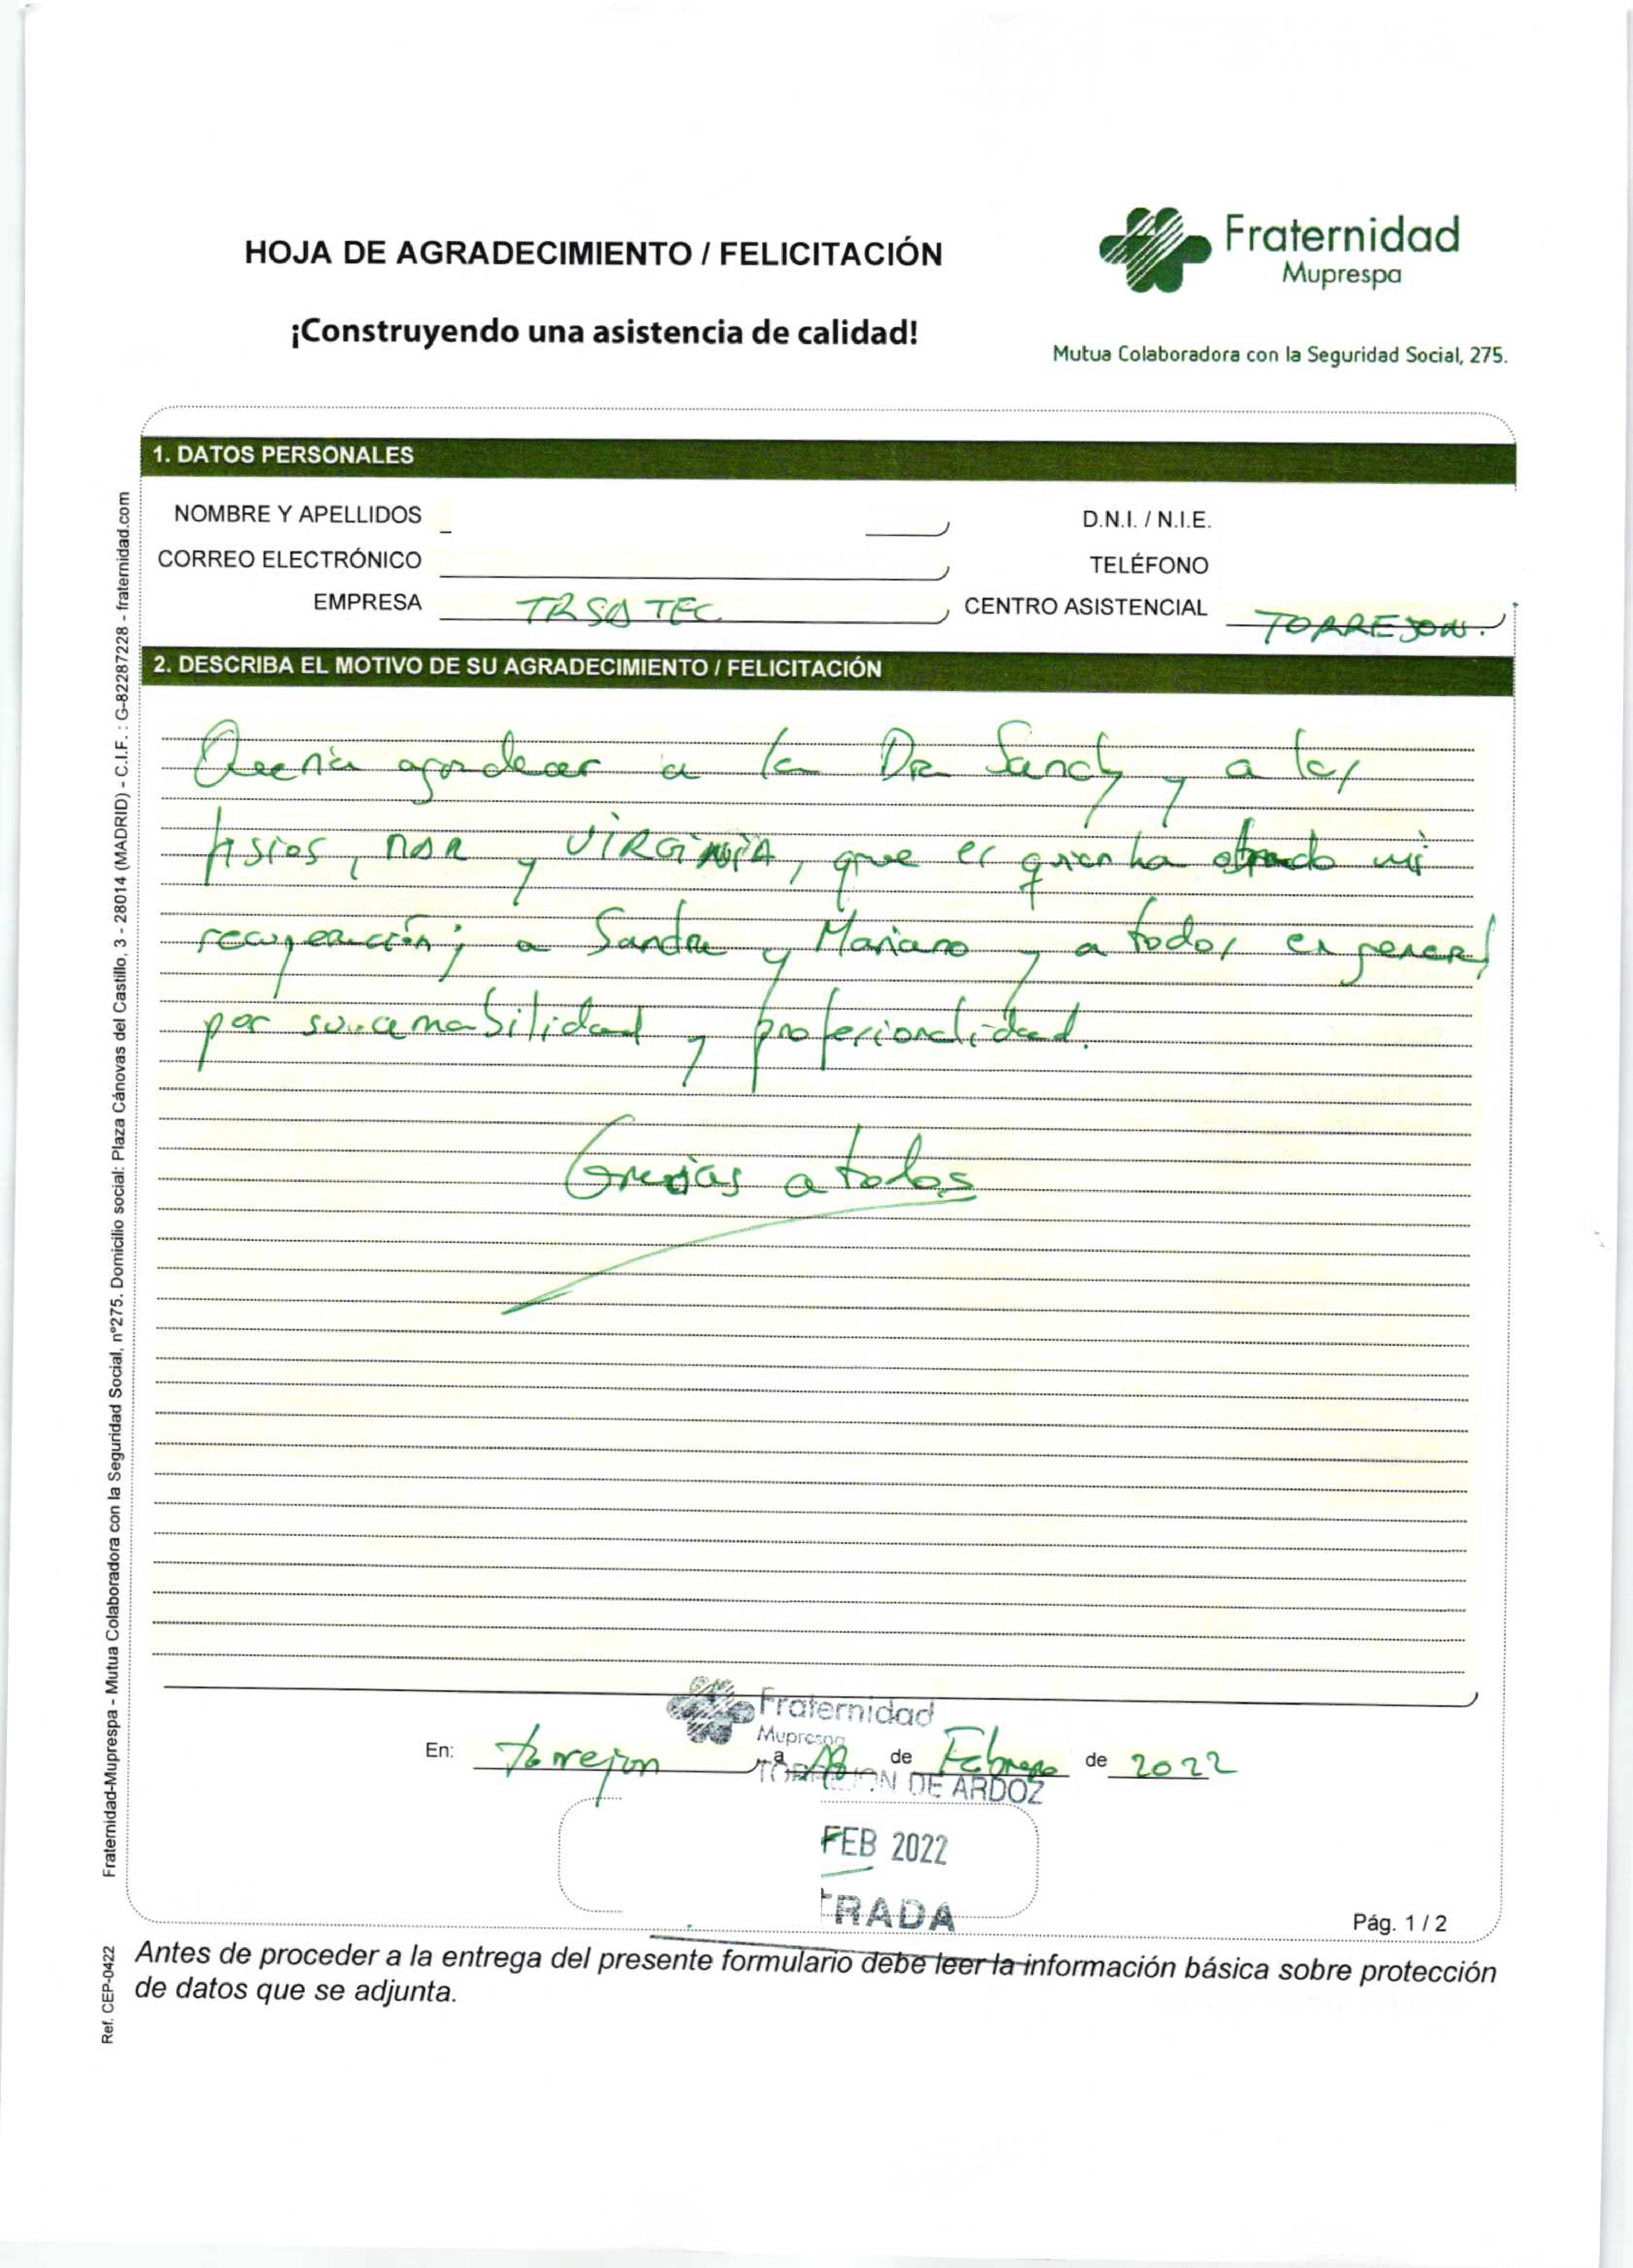 HOJA DE AGRADECIMIENTO / FELICITACIÓN
¡Construyendo una asistencia de calidad!
Fraternidad
Muprespa
Mutua Colaboradora con la Seguridad Social, 275.
1. DATOS PERSONALES
NOMBRE Y APELLIDOS
D.N.I. / N.I.E.
CORREO ELECTRÓNICO
TELÉFONO
EMPRESA
CENTRO ASISTENCIAL TORREJON.
2. DESCRIBA EL MOTIVO DE SU AGRADECIMIENTO / FELICITACIÓN
Quería agradecer a la Dra Sandy y a las
fisios, MAR y VIRGINIA, que es quien ha obrado mi
recuperación; a Sandra y Mariano y a todos en general
por su amabilidad y profesionalidad.
Gracias a todos
Fraternidad
Muprespa
En: torrejon a 18 de Febrero de 2022
TORREJON DE ARDOZ
FEB 2022
TRADA
Pág. 1 / 2
Antes de proceder a la entrega del presente formulario debe leer la información básica sobre protección
de datos que se adjunta.
Fraternidad-Muprespa - Mutua Colaboradora con la Seguridad Social, nº275. Domicilio social: Plaza Cánovas del Castillo, 3 - 28014 (MADRID) - C.I.F. : G-82287228 - fraternidad.com
Ref. CEP-0422